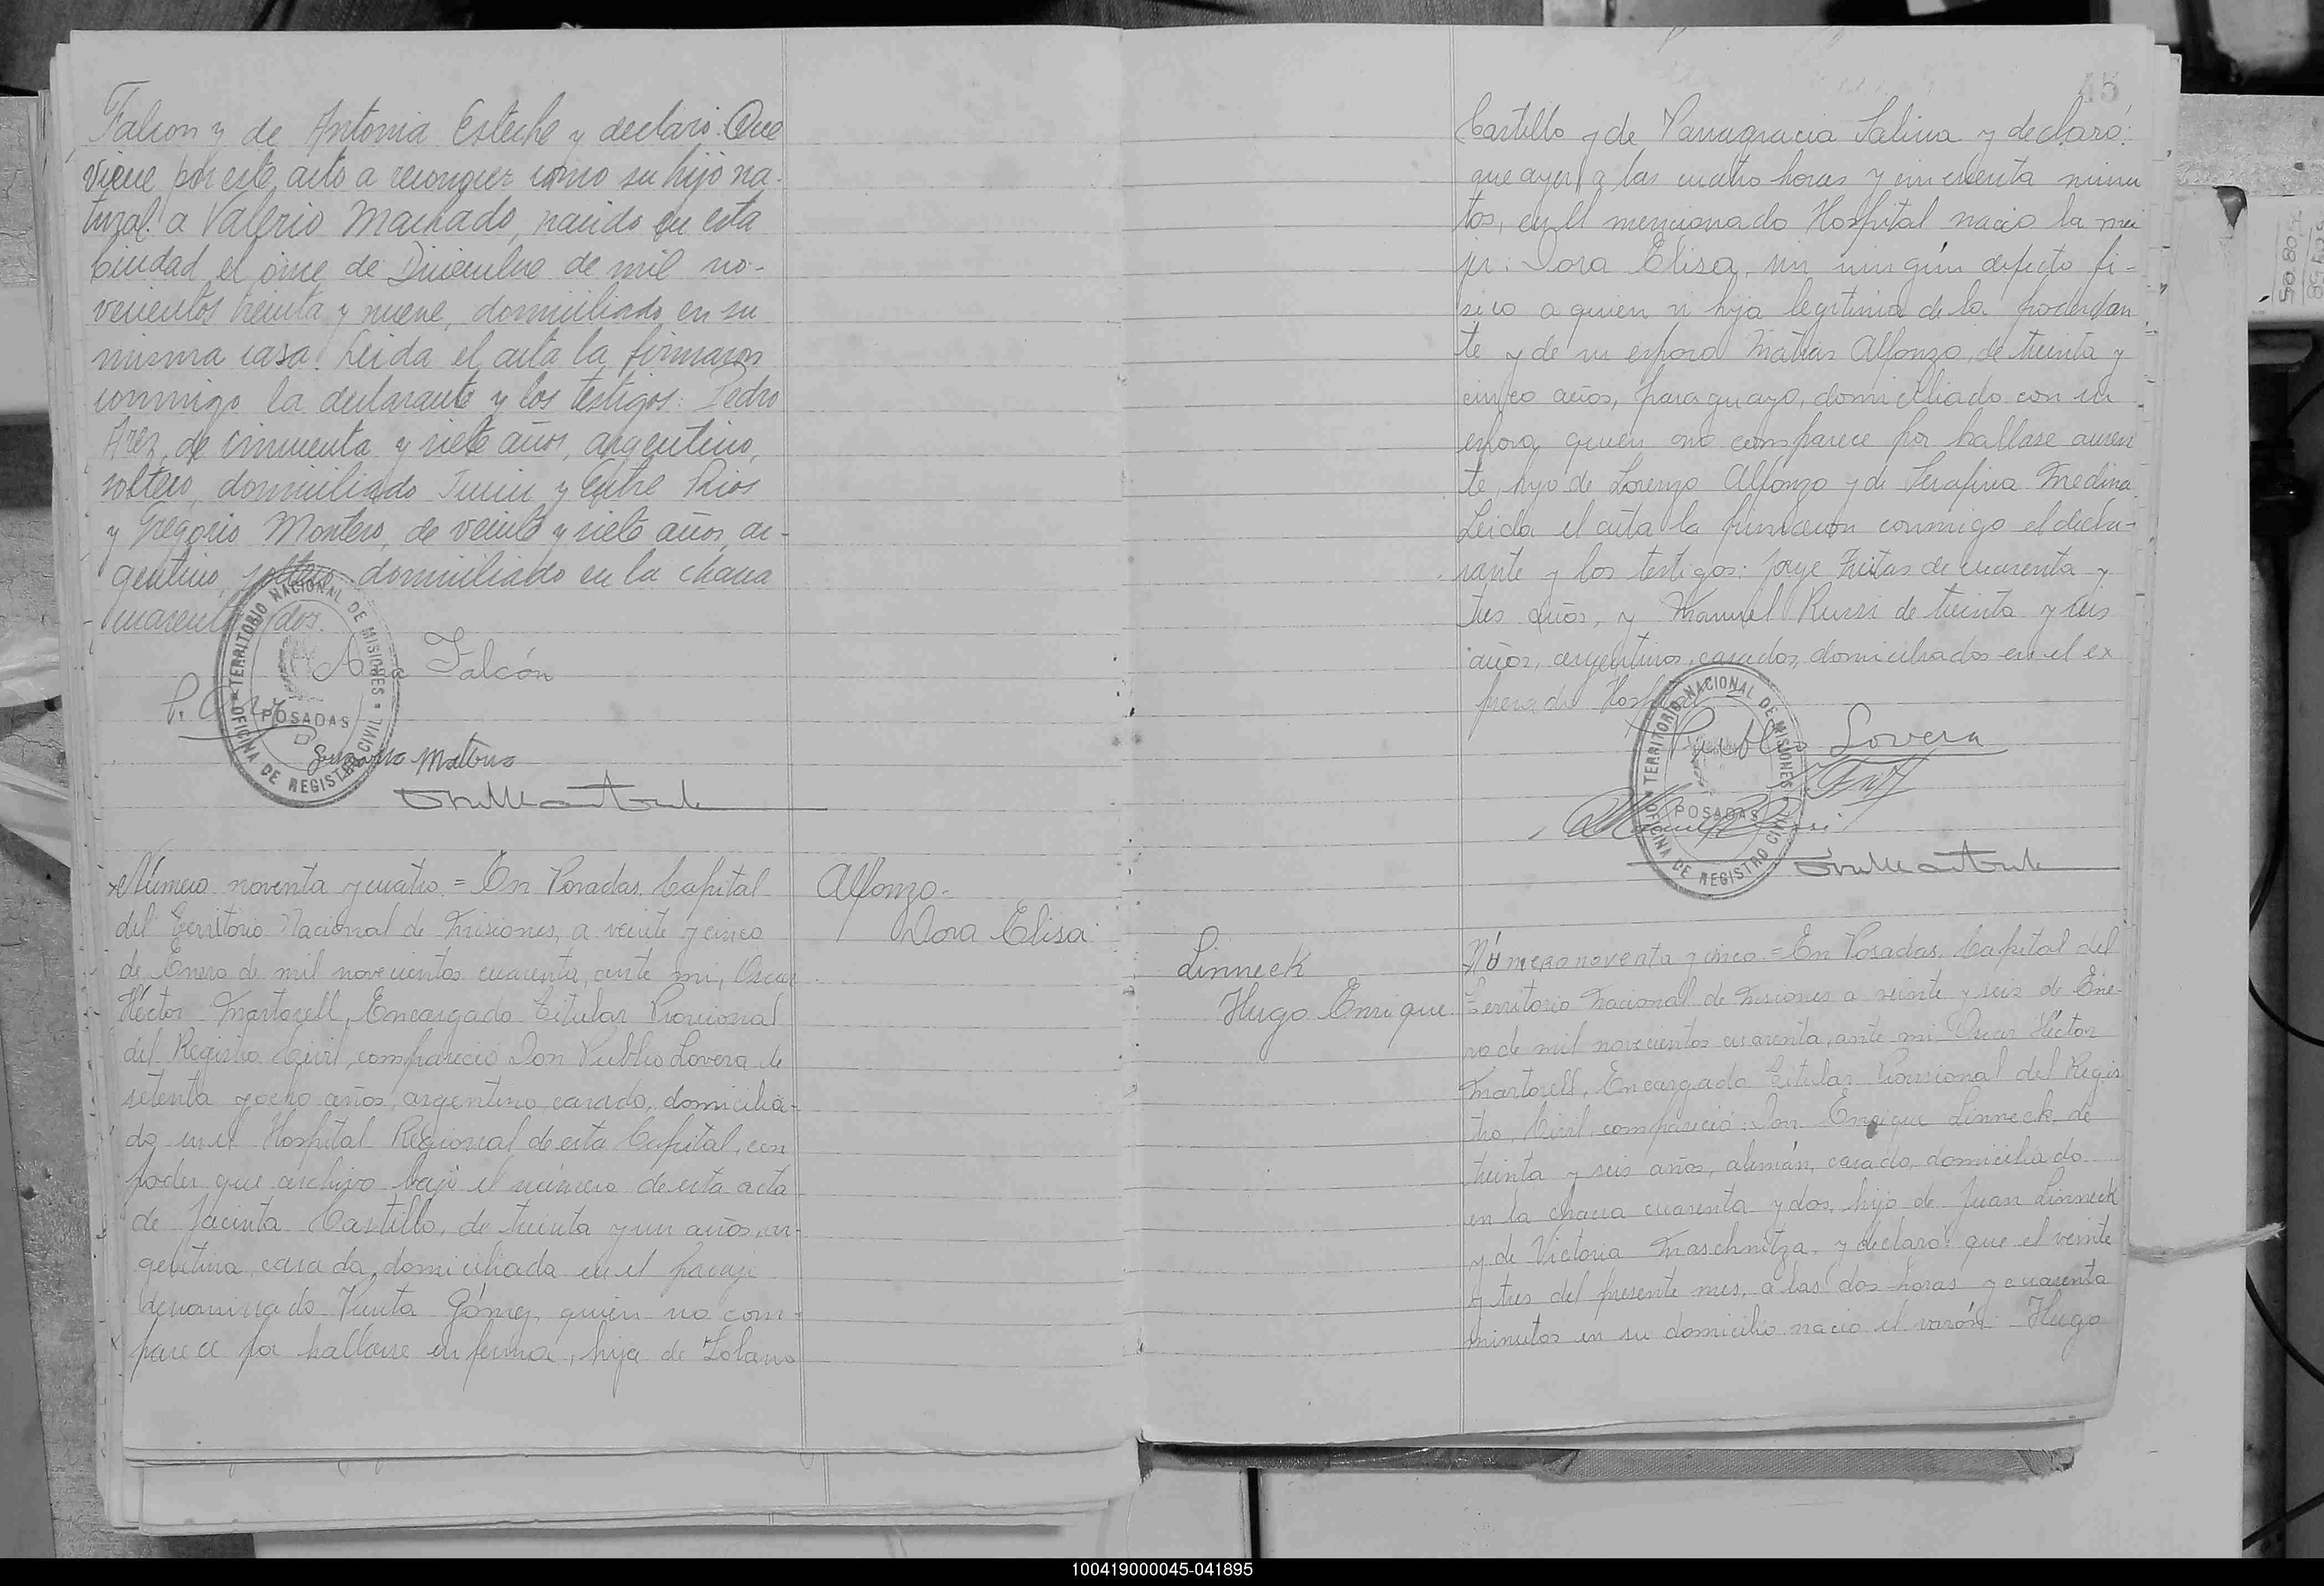 Falcon y de Antonia Esteche y declaró: Que
viene por este acto a reconocer como su hijo na-
tural: a Valerio Machado, nacido en esta
Ciudad el once de Diciembre de mil no-
vecientos treinta y nueve, domiciliado en su
misma casa. Leida el acta la firmaron
conmigo la declarante y los testigos: Pedro
Arez, de cincuenta y siete años, argentino,
soltero, domiciliado Junin y Entre Rios
y Gregorio Montero, de veinte y siete años, ar-
gentino, soltero domiciliado en la chacra
cuarenta dos.
A Falcón
TERRITORIO NACIONAL DE MISIONES
POSADAS
OFICINA DE REGISTRO CIVIL
Número noventa y cuatro = En Posadas, Capital
del Territorio Nacional de Misiones, a veinte y cinco
de Enero de mil novecientos cuarenta, ante mi, Oscar
Héctor Martorell, Encargado Titular Provisional
del Registro Civil, compareció Don Publio Lovera de
setenta y ocho años, argentino, casado, domicilia-
do en el Hospital Regional de esta Capital, con
poder que archivo bajo el número de esta acta
de Jacinta Castillo, de treinta y un años, ar-
gentina, casada, domiciliada en el paraje
denominado Punta Gómez, quien no com-
parece por hallarse enferma, hija de Zolano
Alfonzo-
Dora Elisa
45
Castillo y de Pancracia Salina y declaró:
que ayer, a las cuatro horas y cincuenta minu
tos, en el mencionado Hospital nació la mu
jer: Dora Elisa, sin ningún defecto fi-
sico a quien es hija legitima de la poderdan
te y de su esposo Matias Alfonzo, de treinta y
cinco años, paraguayo, domiciliado con su
esposa, quien no comparece por hallase ausen
te, hijo de Lorenzo Alfonzo y de Serafina Medina.
Leida el acta la firmaron conmigo el decla-
rante y los testigos: Jorge Freitas de cuarenta y
tres años, y Manuel Russi de treinta y seis
años, argentinos, casados, domiciliados en el ex
presado Hospital
Publio Lovera
TERRITORIO NACIONAL DE MISIONES
POSADAS
OFICINA DE REGISTRO CIVIL
Linneck
Hugo Enrique
Número noventa y cinco = En Posadas, Capital del
Territorio Nacional de Misiones a veinte y seis de Ene-
ro de mil novecientos cuarenta, ante mi, Oscar Héctor
Martorell, Encargado Titular Provisional del Regis
tro, Civil, compareció: Don Enrique Linneck, de
treinta y seis años, alemán, casado, domiciliado
en la chacra cuarenta y dos, hijo de Juan Linneck
y de Victoria Maschnitza, y declaró: que el veinte
y tres del presente mes, a las dos horas y cuarenta
minutos en su domicilio nació el varón: Hugo
100419000045-041895